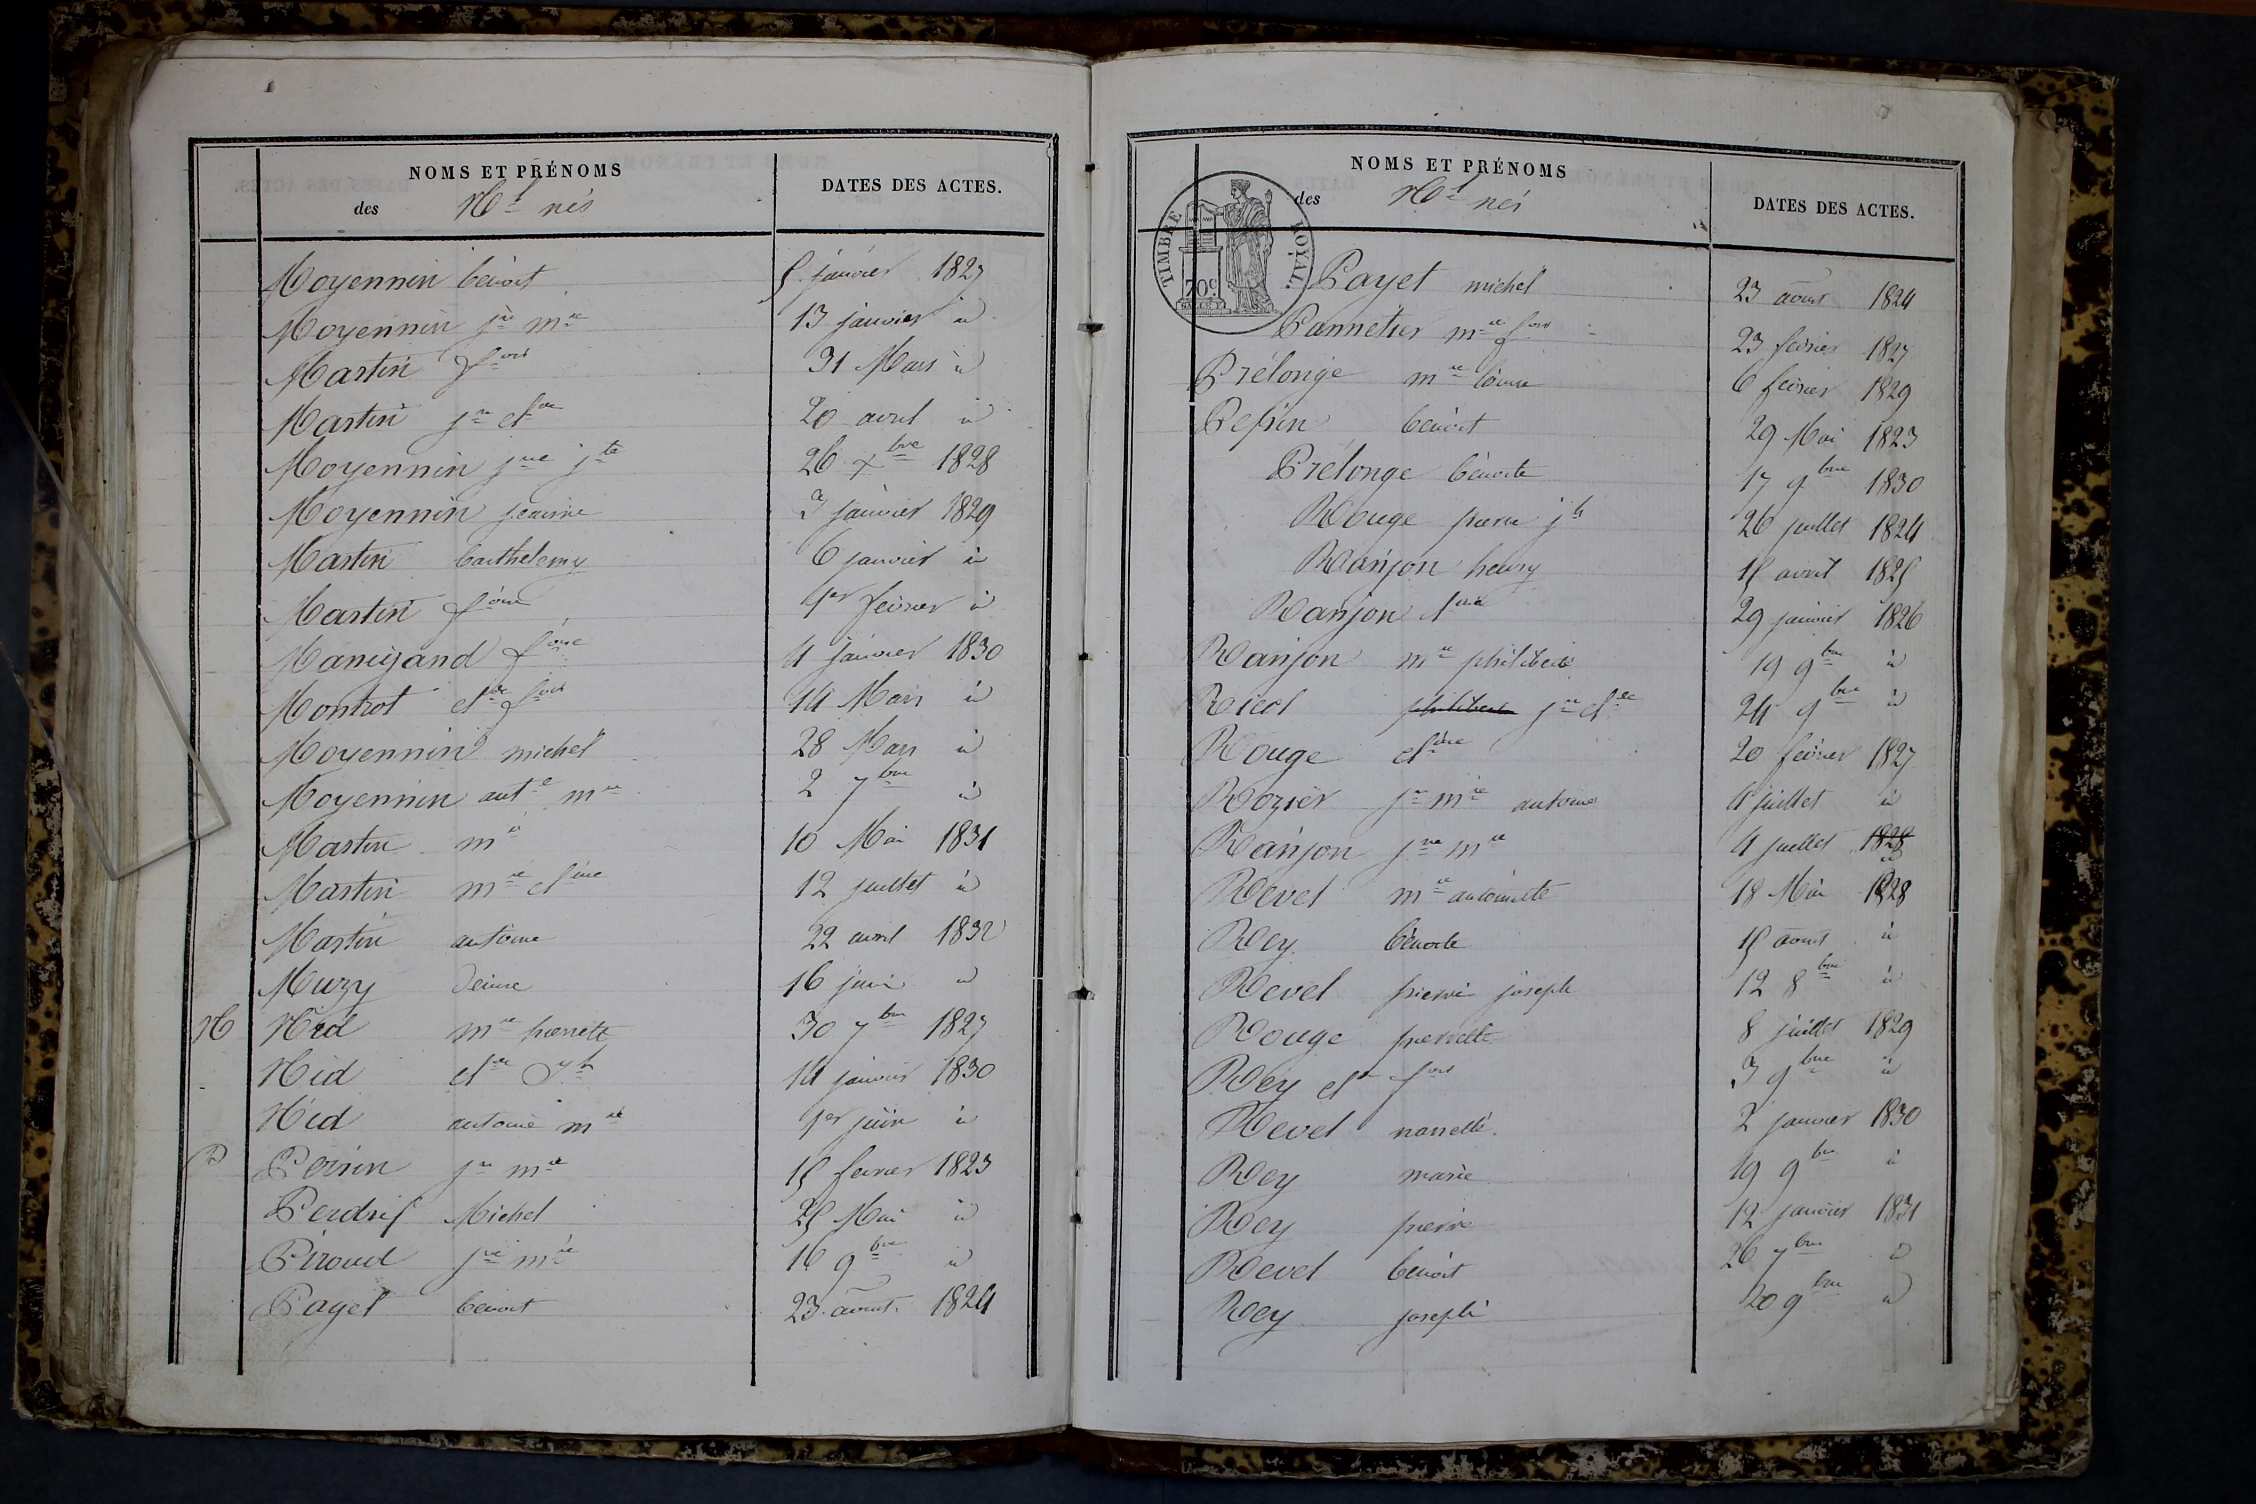 NOMS ET PRÉNOMS
des Nt nés
DATES DES ACTES.
Moyennin benoit 5 janvier 1827
Moyennin jne mie 13 janvier id
Martin fois 31 Mars id
Martin jne clne 20 avril id
Moyennin jne jte 26 Xbre 1828
Moyennin jeanne 3 janvier 1829
Martin barthelemy 6 janvier id
Martin foise 1er fevrier id
Mamijand foise 4 janvier 1830
Montrot clde fois 14 Mars id
Moyennin michel 28 Mars id
Moyennin ante mie 2 7bre id
Martin mie 10 Mai 1831
Martin mie cline 12 juillet id
Martin antoine 22 avril 1832
Muzy 16 juin id
N Nid mie pierrette 30 7bre 1827
Nid clde 14 janvier 1830
Nid antoine mie 1er juin id
P Perrin jne mie 15 fevrier 1823
Perdrix Michel 25 Mai id
Piroud jne mie 16 9bre id
Paget benoit 23 aout 1824
NOMS ET PRÉNOMS
des Nt nés
DATES DES ACTES.
TIMBRE ROYAL.
70c
Payet michel 23 aout 1824
Pannetier mie fois 23 fevrier 1827
Prélonge mie 6 fevrier 1829
Pepin benoit 29 Mai 1823
Prélonge benoite 17 9bre 1830
Rouge pierre jh 26 juillet 1824
Ranjon henry 15 avril 1825
Ranjon 29 janvier 1826
Ranjon mie philiberte 19 9bre id
Ricol philibert jne clde 24 9bre id
Rouge cline 20 fevrier 1827
Rozier jn mie antoine 4 juillet id
Ranjon jne mie 4 juillet 1828 id
Revel mie antoinette 18 Mai 1828
Rey benoite 15 aout id
Revel pierre joseph 12 8bre id
Rouge pierrette 8 juillet 1829
Rey cl fois 3 9bre id
Revel nanette 2 janvier 1830
Rey marie 19 9bre id
Rey pierre 12 janvier 1831
Revel benoit 26 7bre id
Rey joseph 20 9bre id